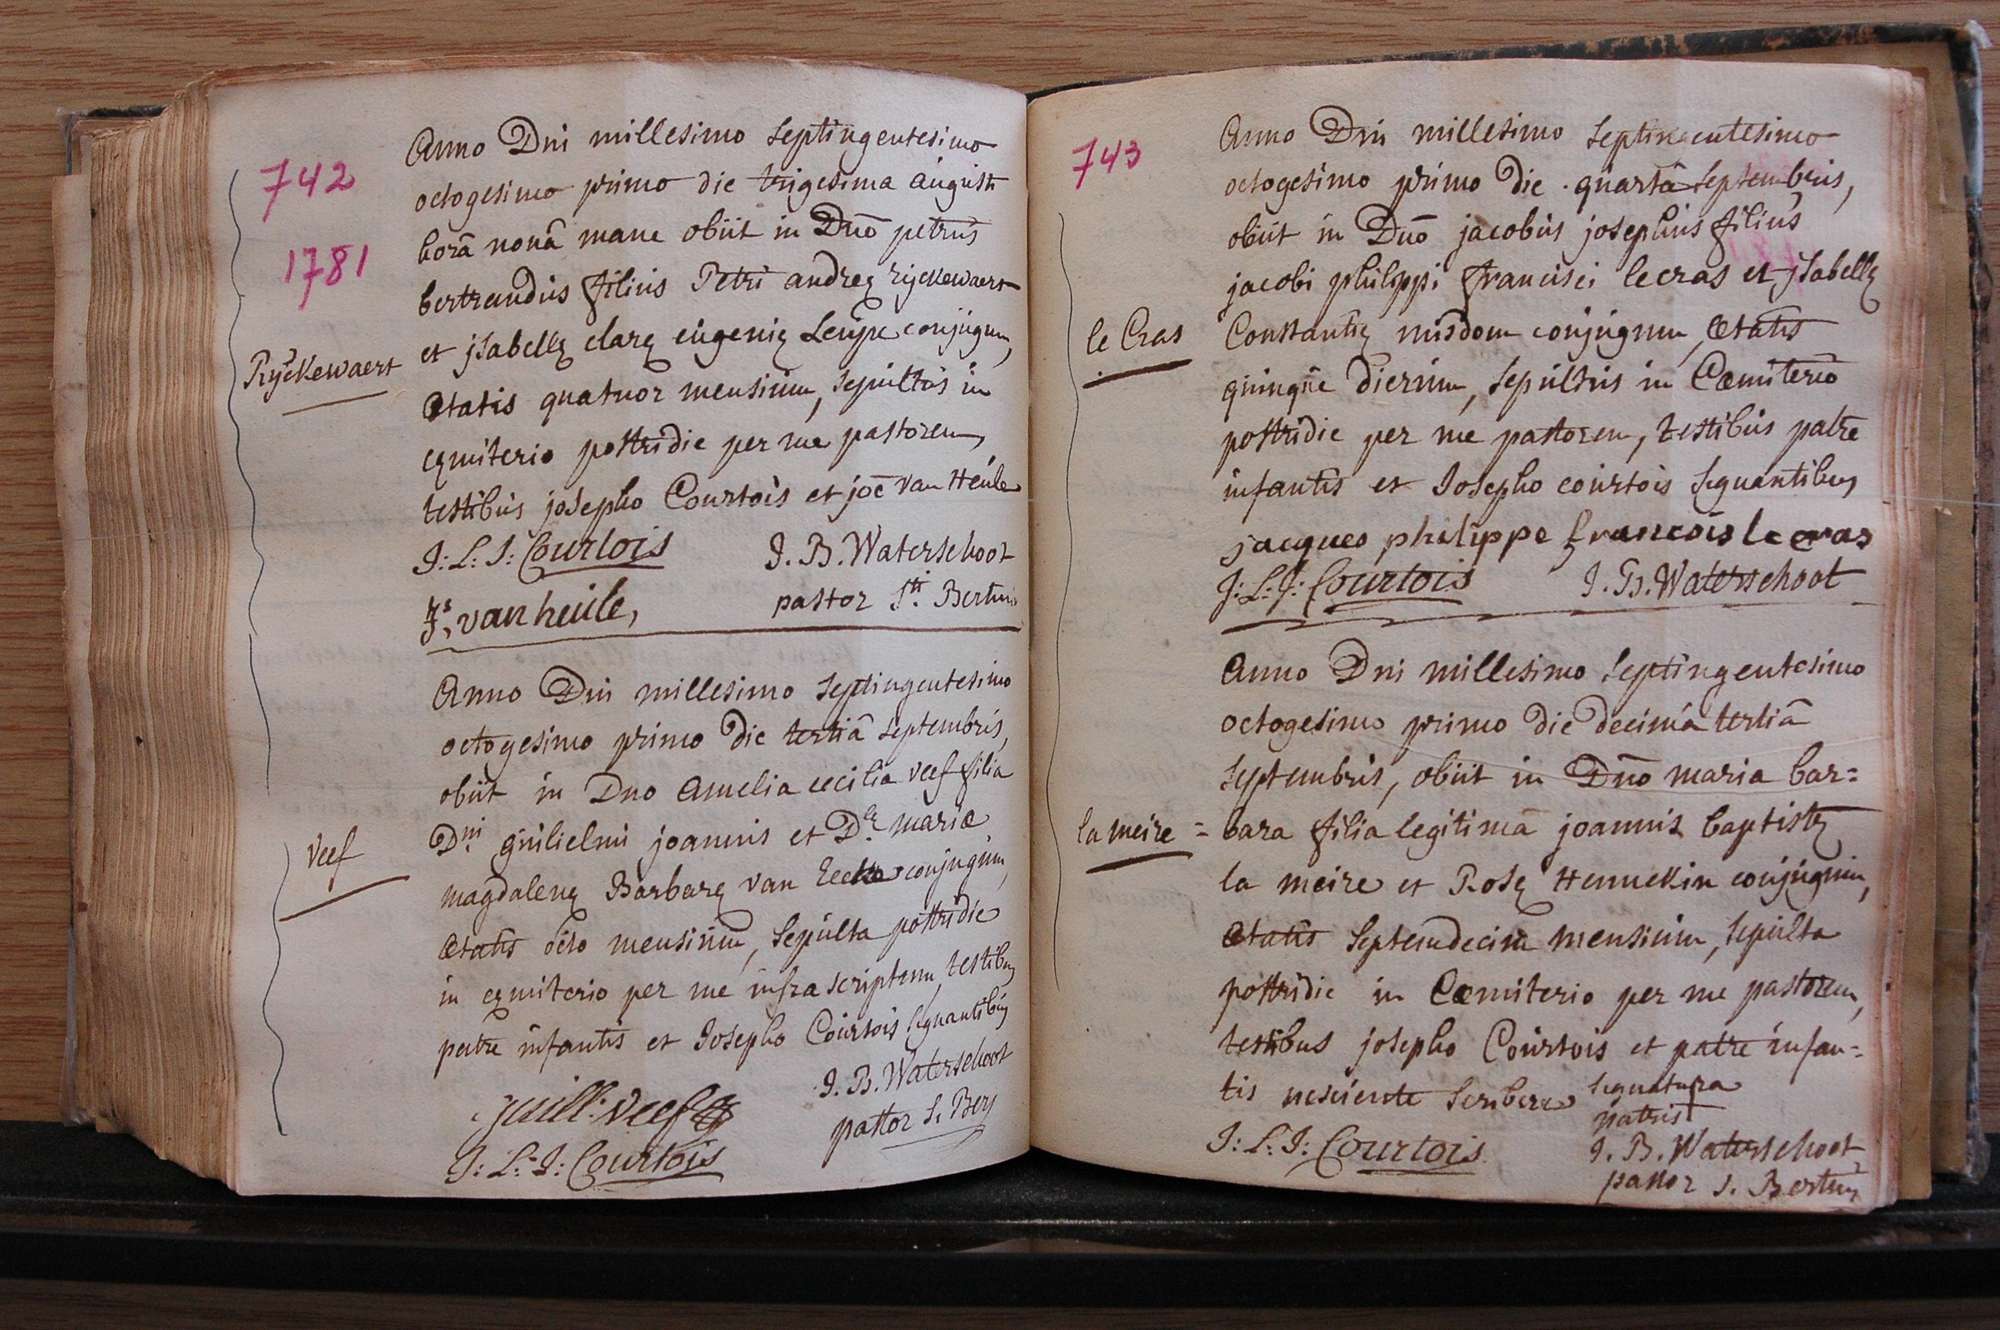 742
1781
Anno Dni millesimo septingentesimo
octogesimo primo die trigesima augusti
horâ nonâ mane obiit in Dnō petrus
bertrandus filius Petri andreę rijckewaert
et jsabellę clarę eugenię Leupe conjugum,
Ætatis quatuor mensium, sepultus in
cęmiterio postridie per me pastorem,
testibus josepho Courtois et joē van Heúle
Rÿckewaert
J: L: J: Courtois
J. B. Waterschoot
Js. van heule,
pastor Sti Bertini
Anno Dni millesimo septingentesimo
octogesimo primo die tertiâ septembris,
obiit in Dno Amelia cecilia veef filia
Dni guilielmi joannis et Dlę mariæ
magdalenę Barbarę van Eecke conjugum,
Ætatis octo mensium, sepulta postridie
in cęmiterio per me infrascriptum, testibus
patre infantis et Josepho Courtois signantibus
Veef
J. B. Waterschoot
guill: veef
pastor S. Ber
J: L: J: Courtois
743
Anno Dni millesimo septingentesimo
octogesimo primo die quartâ septembris,
obiit in Dnō jacobus josephus filius
jacobi philippi francisci lecras et jsabellę
Constantię misdom conjugum, Ætatis
quinque dierum, sepultus in Cœmiterio
postridie per me pastorem, testibus patre
infantis et Josepho courtois signantibus
le Cras
jacques philippe francois le cras
J: L: J: Courtois
J. B. Waterschoot
Anno Dni millesimo septingentesimo
octogesimo primo die decimâ tertiâ
septembris, obiit in Dnō maria bar=
=bara filia legitima joannis baptistę
la meire et Rosę Hennekin conjugum,
Ætatis septemdecim mensium, sepulta
postridie in Cœmiterio per me pastorem,
testibus josepho Courtois et patre infan=
tis nesciente scribere
la meire
signatura
patris †
J: L: J: Courtois
J. B. Waterschoot
pastor S. Bertini